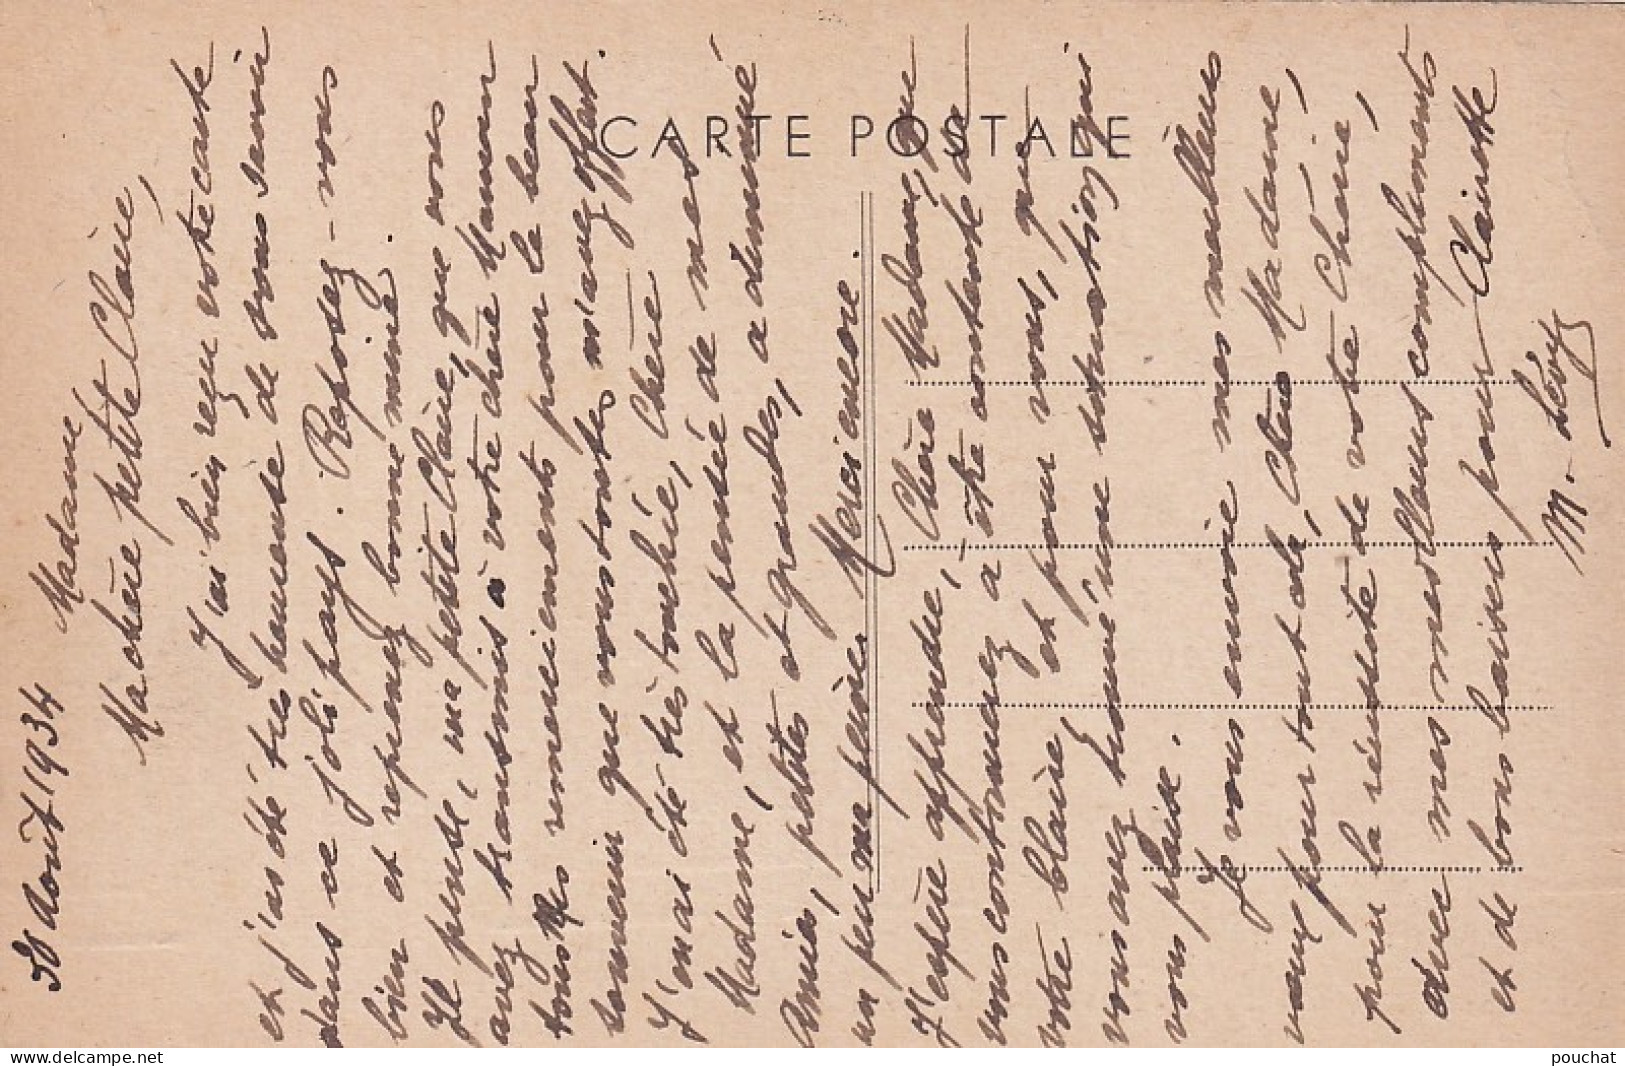 CARTE POSTALE
30 Août 1934
Madame
Ma chère petite Claire,
J'ai bien reçu votre carte
et j'ai été très heureuse de vous savoir
dans ce joli pays. Reposez-vous
bien et reprenez bonne mine.
Je pense, ma petite Claire, que vous
avez transmis à votre chère Maman
tous mes remerciements pour le beau
que vous toutes m'avez offert.
J'en ai été très touchée, Chère
Madame, et la pensée de mes
Amies, petites et grandes, a diminué
un peu ma peine. Merci encore.
J'espère apprendre, Chère Madame, que
vous continuez à être contente de
votre Claire et pour vous, que
vous avez trouvé une situation qui
vous plaise.
Je vous envoie mes meilleurs
vœux pour tout cela, Chère Madame,
pour la réussite de votre Chérie,
avec mes meilleurs compliments
et de bons baisers pour Clairette
M. Lévy
pouchat
www.delcampe.net